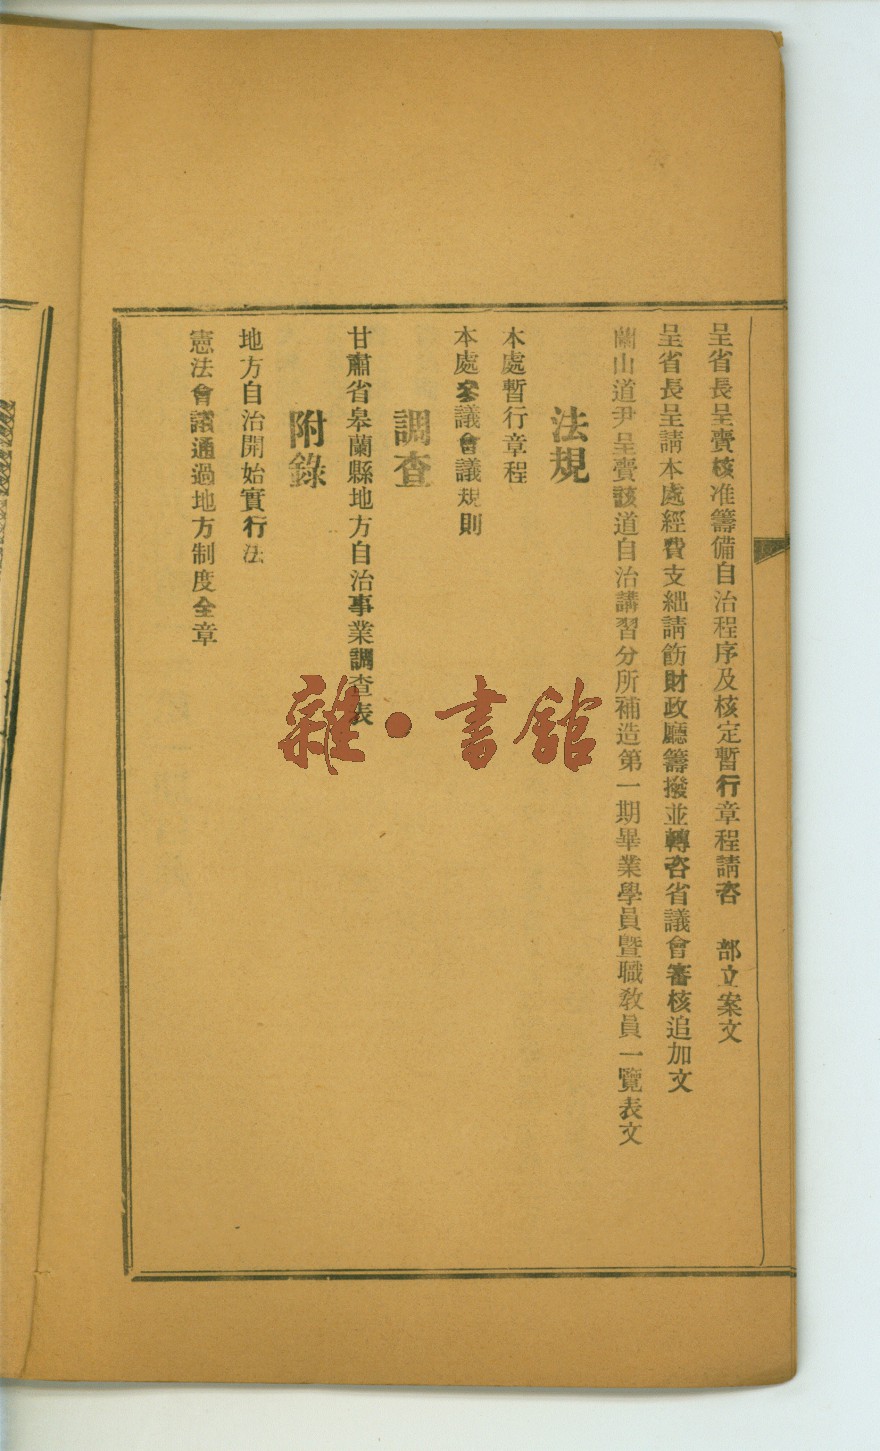 呈省長呈賫核准籌備自治程序及核定暫行章程請咨　部立案文
呈省長呈請本處經費支絀請飭財政廳籌撥並轉咨省議會審核追加文
蘭山道尹呈賫該道自治講習分所補造第一期畢業學員暨職敎員一覽表文
法規
本處暫行章程
本處叅議會議規則
調查
甘肅省皋蘭縣地方自治事業調查表
附錄
地方自治開始實行法
憲法會議通過地方制度全章
雜·書館